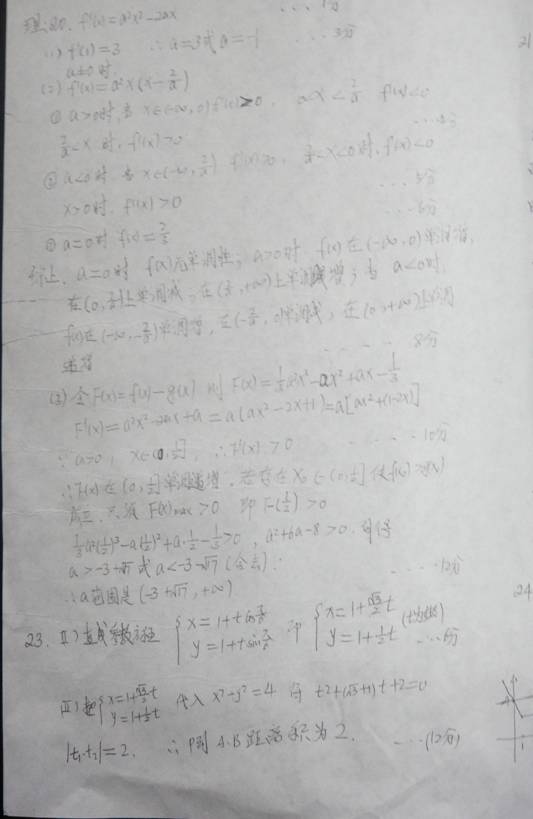 理:20. f'(x)=a²x²-2ax ……1分
(1) f'(1)=3 ∴a=3或a=-1 ……3分
a≠0时.
(2) f'(x)=a²x(x-2/a)
① a>0时,当 x∈(-∞,0) f'(x)>0. 0<x<2/a f'(x)<0
2/a<x 时, f'(x)>0
② a<0时,当 x∈(-∞,2/a) f'(x)>0, 2/a<x<0时,f'(x)<0
x>0时. f'(x)>0 ……5分
③ a=0时 f(x)=2/3 ……6分
综上, a=0时 f(x)无单调性; a>0时 f(x)在(-∞,0)单调增,
在(0,2/a)上单调减,在(2/a,+∞)上单调增;当 a<0时.
f(x)在(-∞,2/a)单调增,在(2/a,0)单调减,在(0,+∞)上单调
递增 ……8分
(3) 令F(x)=f(x)-g(x) 则 F(x)=1/3a²x³-ax²+ax-1/3
F'(x)=a²x²-2ax+a=a(ax²-2x+1)=a[ax²+(1-2x)]
∵a>0, x∈(0,1/2], ∴F'(x)>0 ……10分
∴F(x)在(0,1/2]单调递增. 若存在x₀∈(0,1/2]使
成立.只须 F(x)max>0 即F(1/2)>0
1/3a²(1/2)³-a(1/2)²+a·1/2-1/3>0, a²+6a-8>0.
a>-3+√17或a<-3-√17(舍去). ……12分
∴a范围是(-3+√17,+∞)
23. I)直线参数方程 {x=1+tcosπ/6 y=1+tsinπ/6 即 {x=1+√3/2t y=1+1/2t (t为参数)
II)把{x=1+√3/2t y=1+1/2t 代入 x²+y²=4 得 t²+(√3+1)t+2=0
|t₁·t₂|=2. ∴P到A.B距离积为2. ……(12分)
21
24